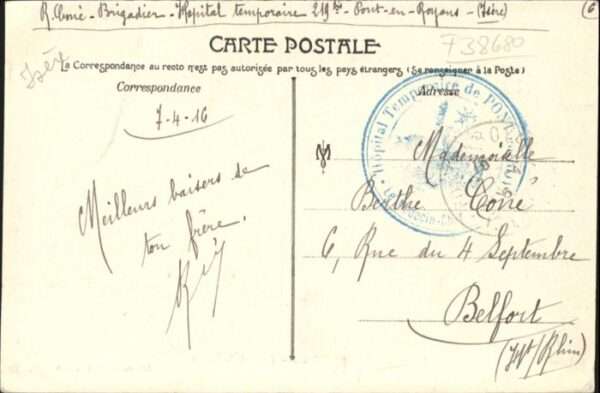 R. Coné - Brigadier - Hôpital temporaire 219 bis - Pont-en-Royans - (Isère)
6
Isère
F38680
CARTE POSTALE
La Correspondance au recto n'est pas autorisée par tous les pays étrangers (Se renseigner à la Poste)
Correspondance
Adresse
7-4-16
Meilleurs baisers de
ton frère.
Hôpital Temporaire de PONT
M
Mademoiselle
Berthe Coné
6, Rue du 4 Septembre
Belfort
(Ht/Rhin)